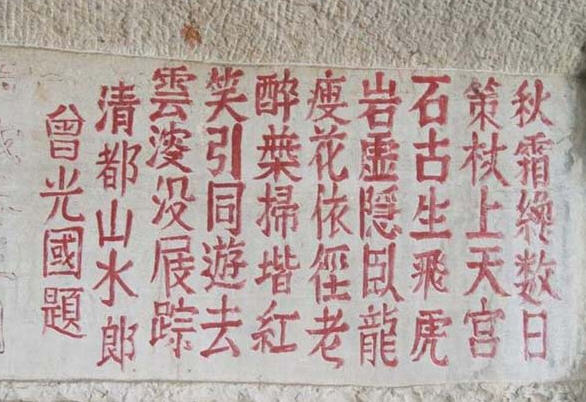 秋霜纔数日
策杖上天宫
石古生飛虎
岩虚隱臥龍
瘦花依徑老
醉葉掃堦紅
笑引同遊去
雲深没屐踪
清都山水郎
曾光國題